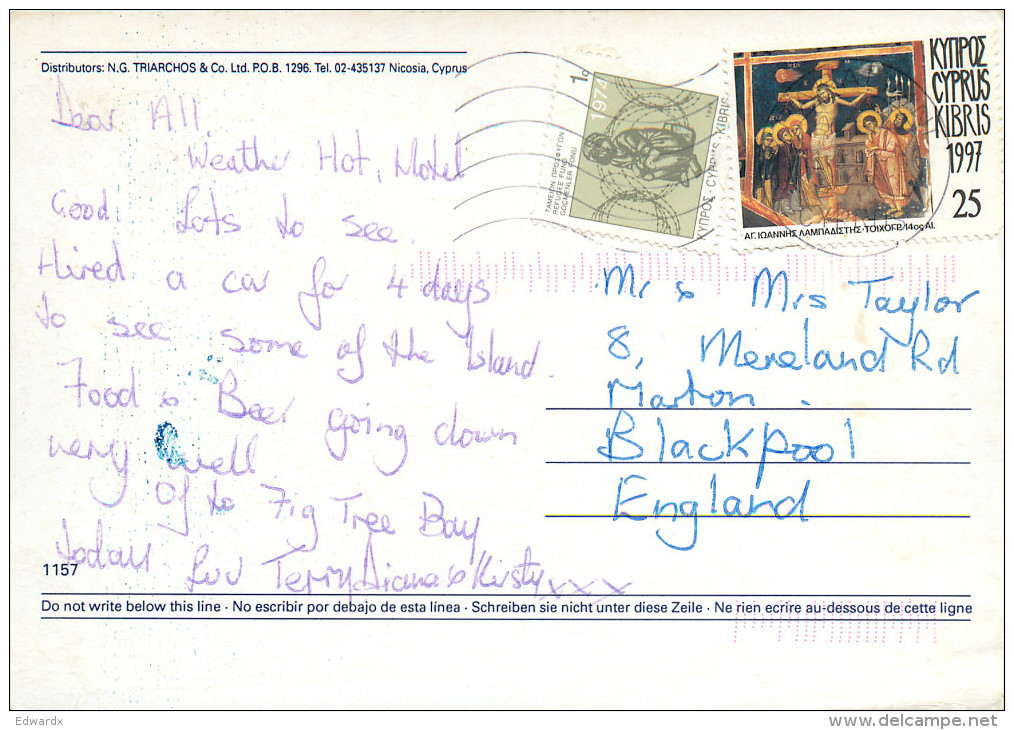 Distributors: N.G. TRIARCHOS & Co. Ltd. P.O.B. 1296. Tel. 02-435137 Nicosia, Cyprus
Dear All,
Weather Hot, Motel
Good Lots to see.
Hired a car for 4 days
to see some of the Island.
Food & Beer going down
very well
Of to Fig Tree Bay
today
Luv Terry Diana & Kirsty xxx
1157
1c
1974
ΤΑΜΕΙΟΝ ΠΡΟΣΦΥΓΩΝ
REFUGEE FUND
GÖÇMENLER FONU
ΚΥΠΡΟΣ · CYPRUS · KIBRIS
ΚΥΠΡΟΣ
CYPRUS
KIBRIS
1997
25
ΑΓ. ΙΩΑΝΝΗΣ ΛΑΜΠΑΔΙΣΤΗΣ · ΤΟΙΧΟΓΡ. 14ος ΑΙ.
Mr & Mrs Taylor
8, Mereland Rd
Marton.
Blackpool
England
Do not write below this line · No escribir por debajo de esta línea · Schreiben sie nicht unter diese Zeile · Ne rien ecrire au-dessous de cette ligne
Edwardx
delcampe.net